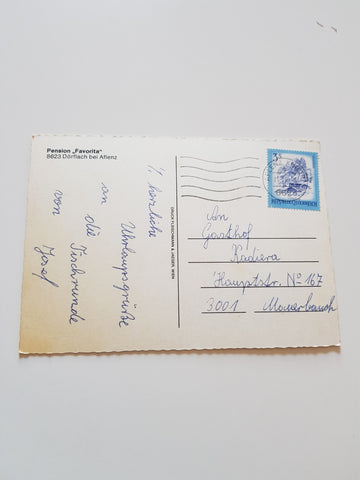 Pension „Favorita"
8623 Dörflach bei Aflenz
herzliche
Urlaupsgrüße
an die Tischrunde
von Josef
DRUCK FLEISCHMANN & JAEGER, WIEN
3 S
REPUBLIK ÖSTERREICH
An
Gasthof
Kadiera
Hauptstr. No 167
3001 Mauerbach